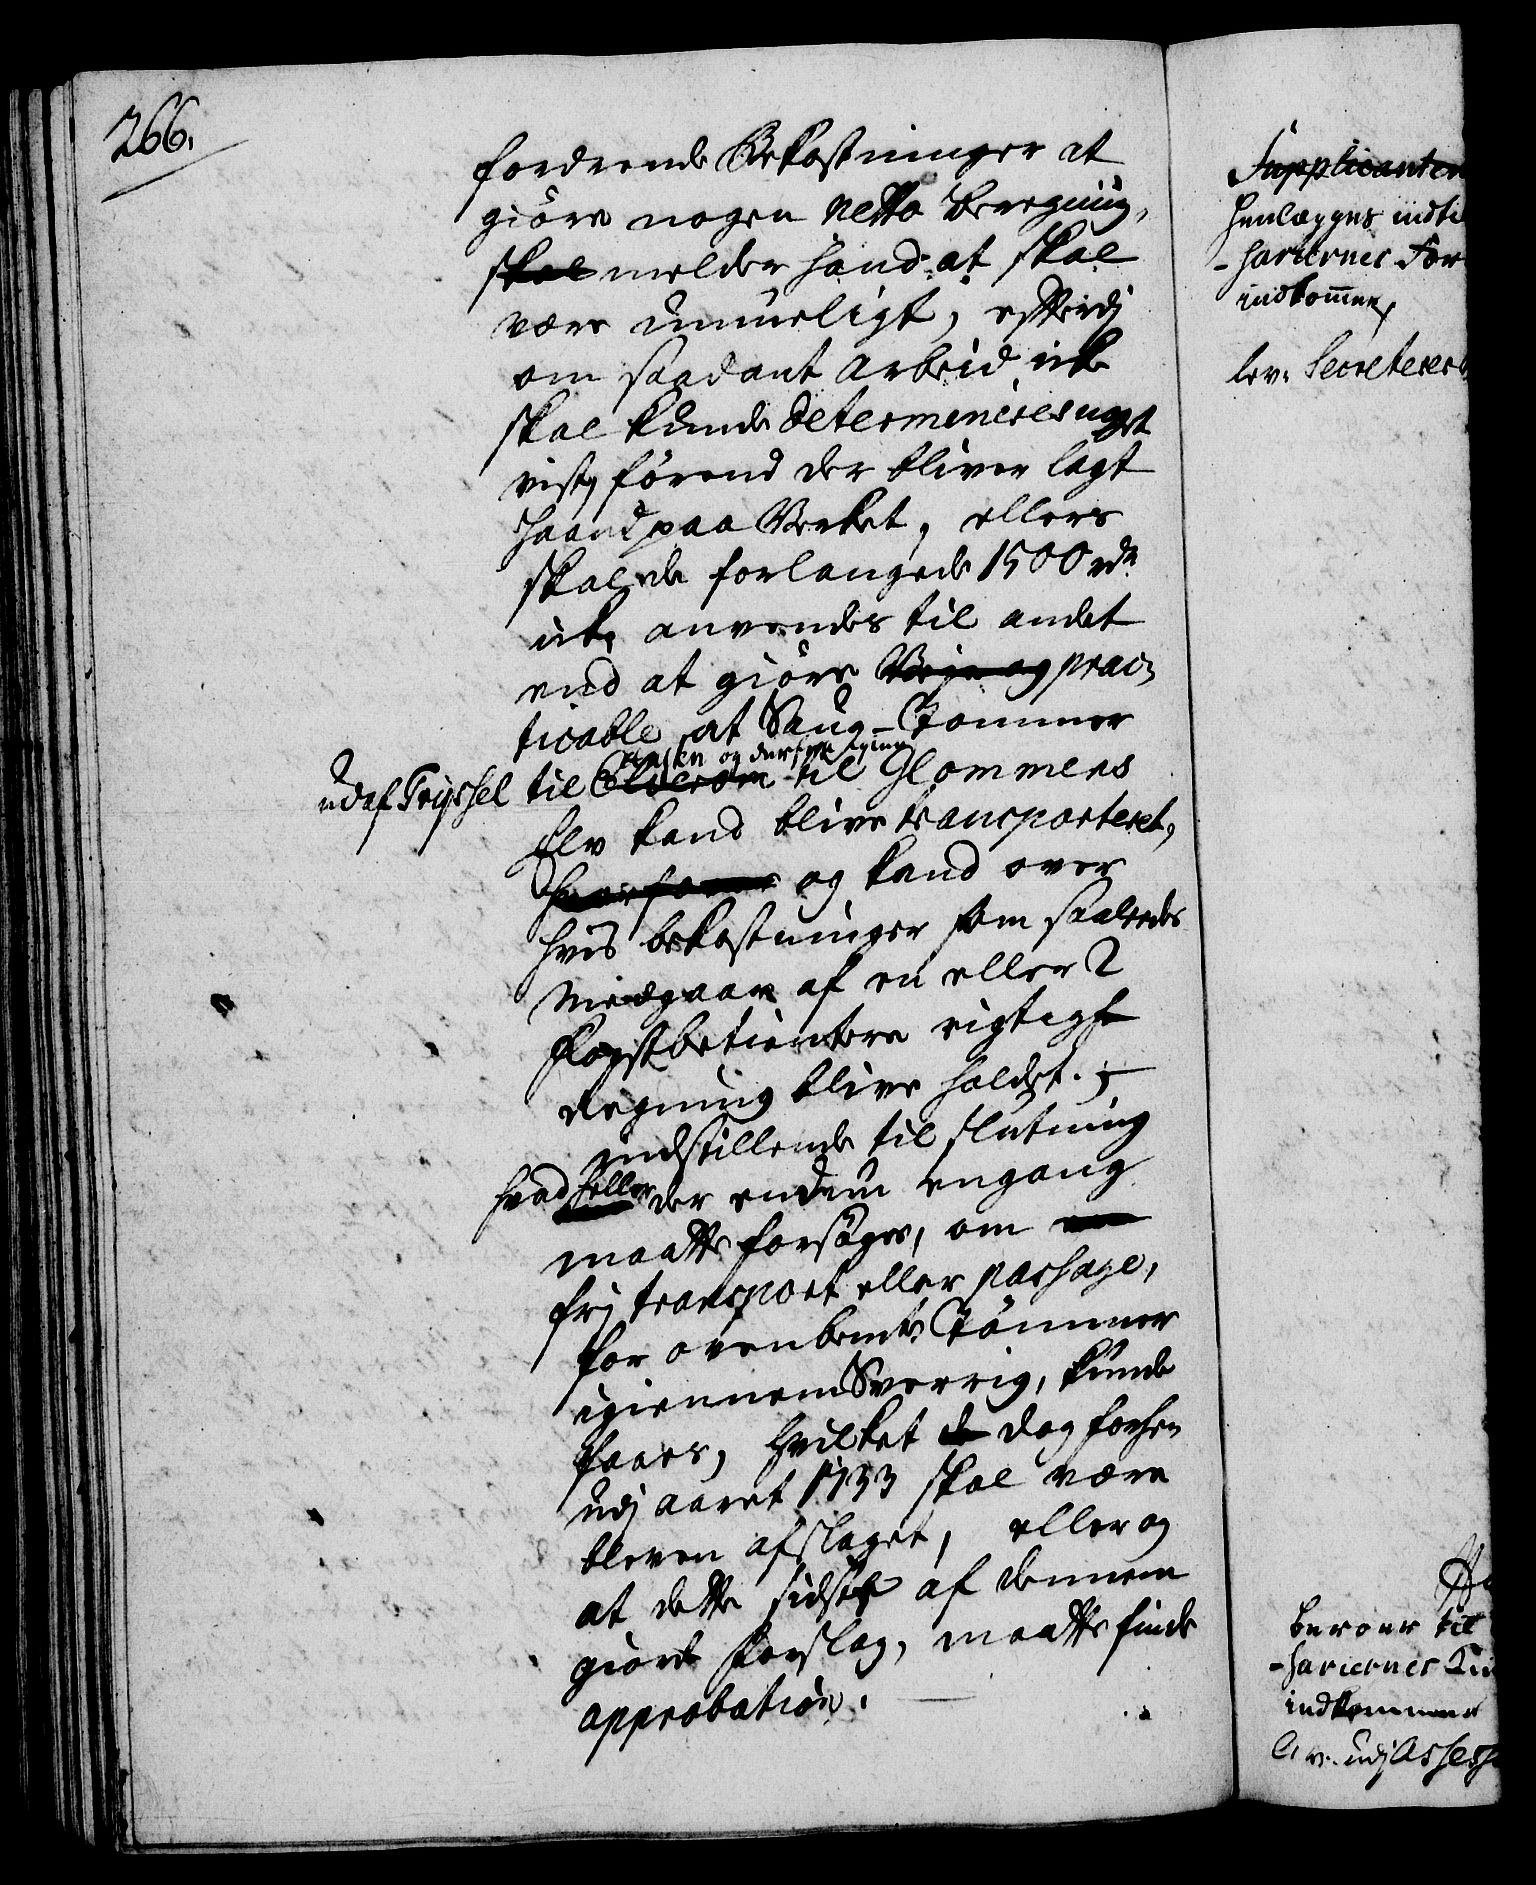 266.
fordrende Bekostninger at
giöre nogen netto Beregning,
skal melder hand at skal
være umueligt, efterdj
om saadant Arbeid icke
skal kunde determineres noget
vist, förend der bliver lagt
Haand paa Verket, ellers
skal de forlangede 1500 rdr
icke anvendes til andet
end at giöre Veje og prac-
ticable, at Saug-Tömmer
udaf Tryssel til Elverom til Glommens
Elv kand blive transporteret,
og kand over
hvis bekostninger som saaledes
medgaar af en eller 2
Forstbetientere rigtigst
Regning blive holdet.
indstillende til slutning
hvad heller der endnu engang
maatte forsöges, om
frj transport eller passage,
for ovenbemte Tömmer
igiennem Sverrig, kunde
faaes, hvilket dog forhen
udj aaret 1733 skal være
bleven afslaget, eller og
at dette sidste af dennem
giorde Forslag, maatte finde
approbation.
Supplicanten
henlægges indti
-sariernes For
indkommer,
lev. Secreterer
beroer til
-sariernes
indkommer
lev. udj Assess